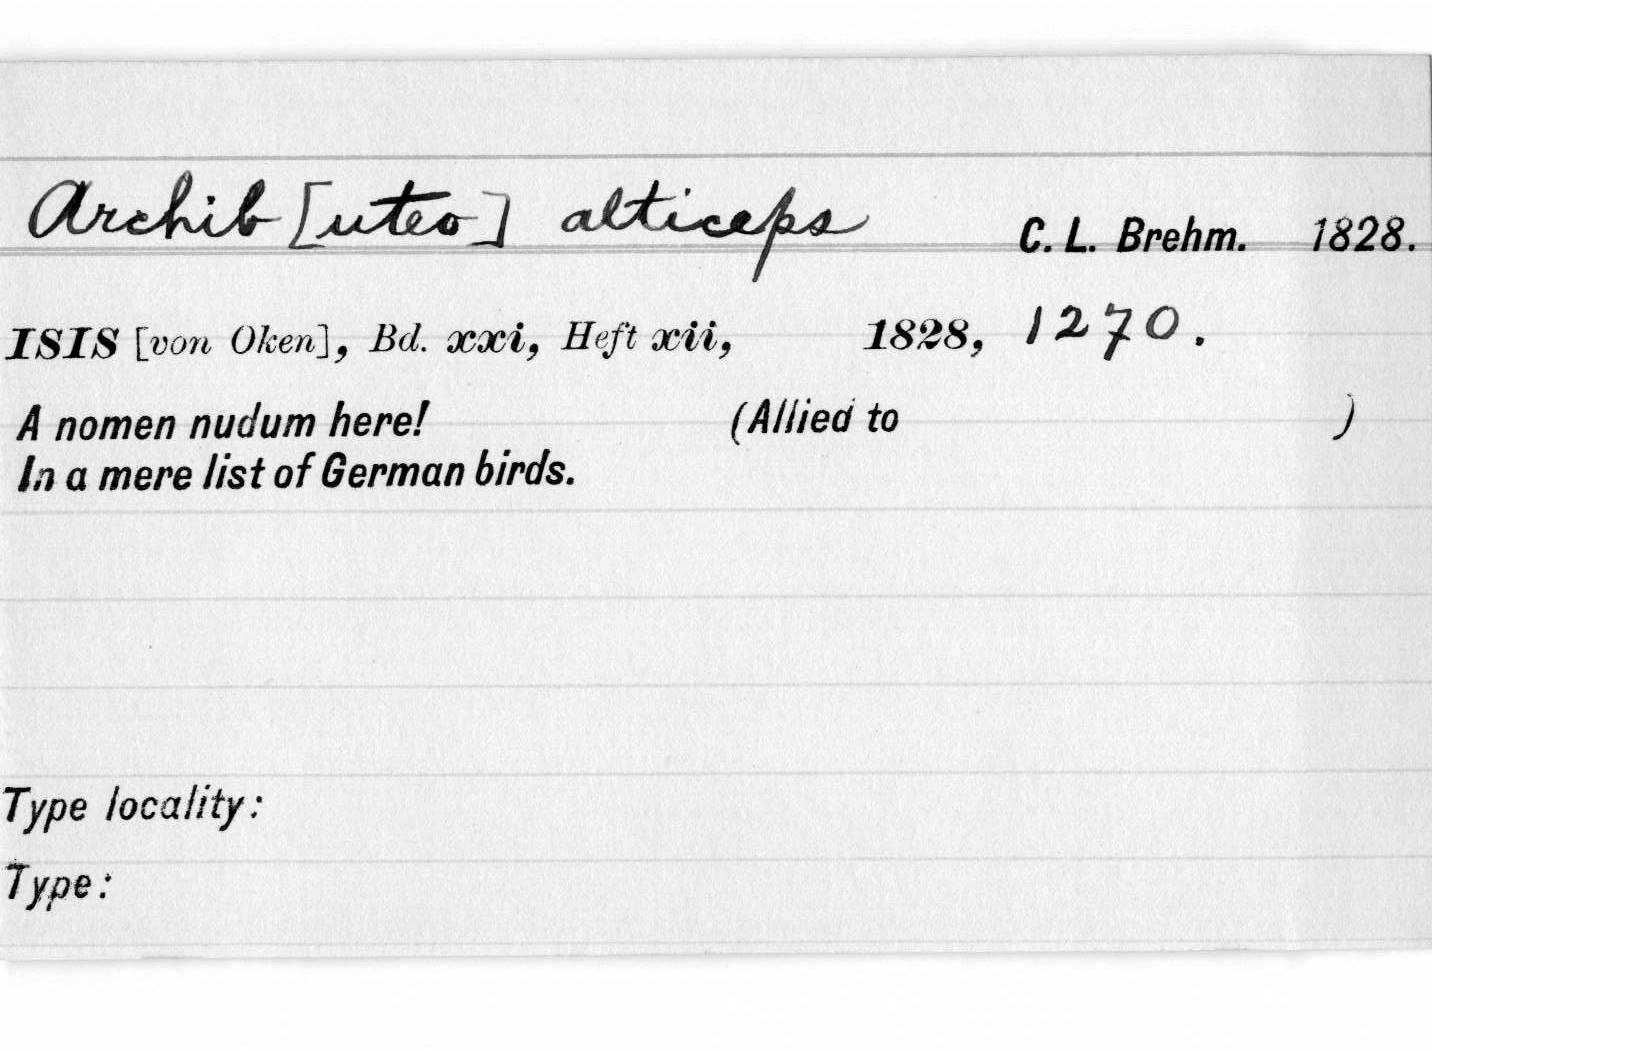 Archib [uteo] alticeps C. L. Brehm. 1828.
ISIS [von Oken], Bd. xxi, Heft xii, 1828, 1270.
A nomen nudum here! (Allied to )
In a mere list of German birds.
Type locality:
Type: